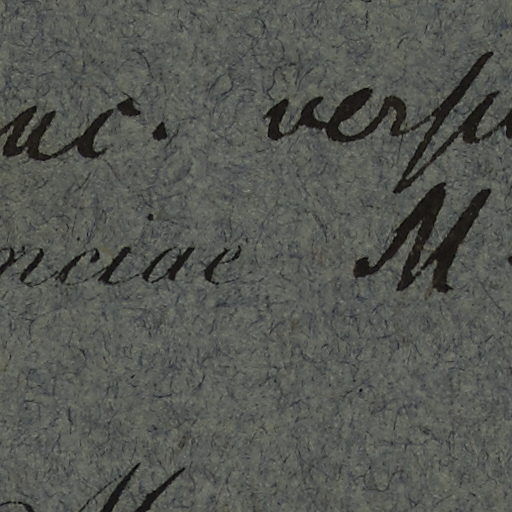 uc. versu
nciae M